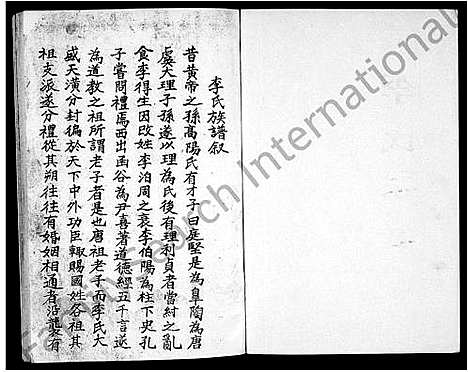 李氏族譜叙
昔黄帝之孫高陽氏有才子曰庭堅是為臯陶為唐
虞大理子孫遂以理為氏後有理利貞者當紂之亂
食李得生因改姓李泊周之衰李伯陽為柱下史孔
子嘗問禮焉西出函谷為尹喜著道德經五千言遂
為道教之祖所謂老子者是也唐祖老子而李氏大
盛天潢分封徧於天下中外功臣輙賜國姓各祖其
祖支派遂分禮從其朔往往有婚姻相通者沿龍有
FamilySearch International